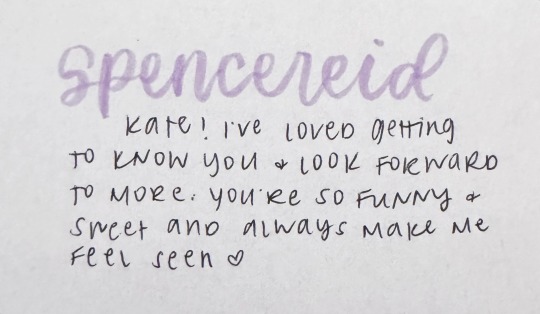 spencereid
Kate! I've loved getting
to know you & look forward
to more. you're so funny &
sweet and always make me
feel seen ♡